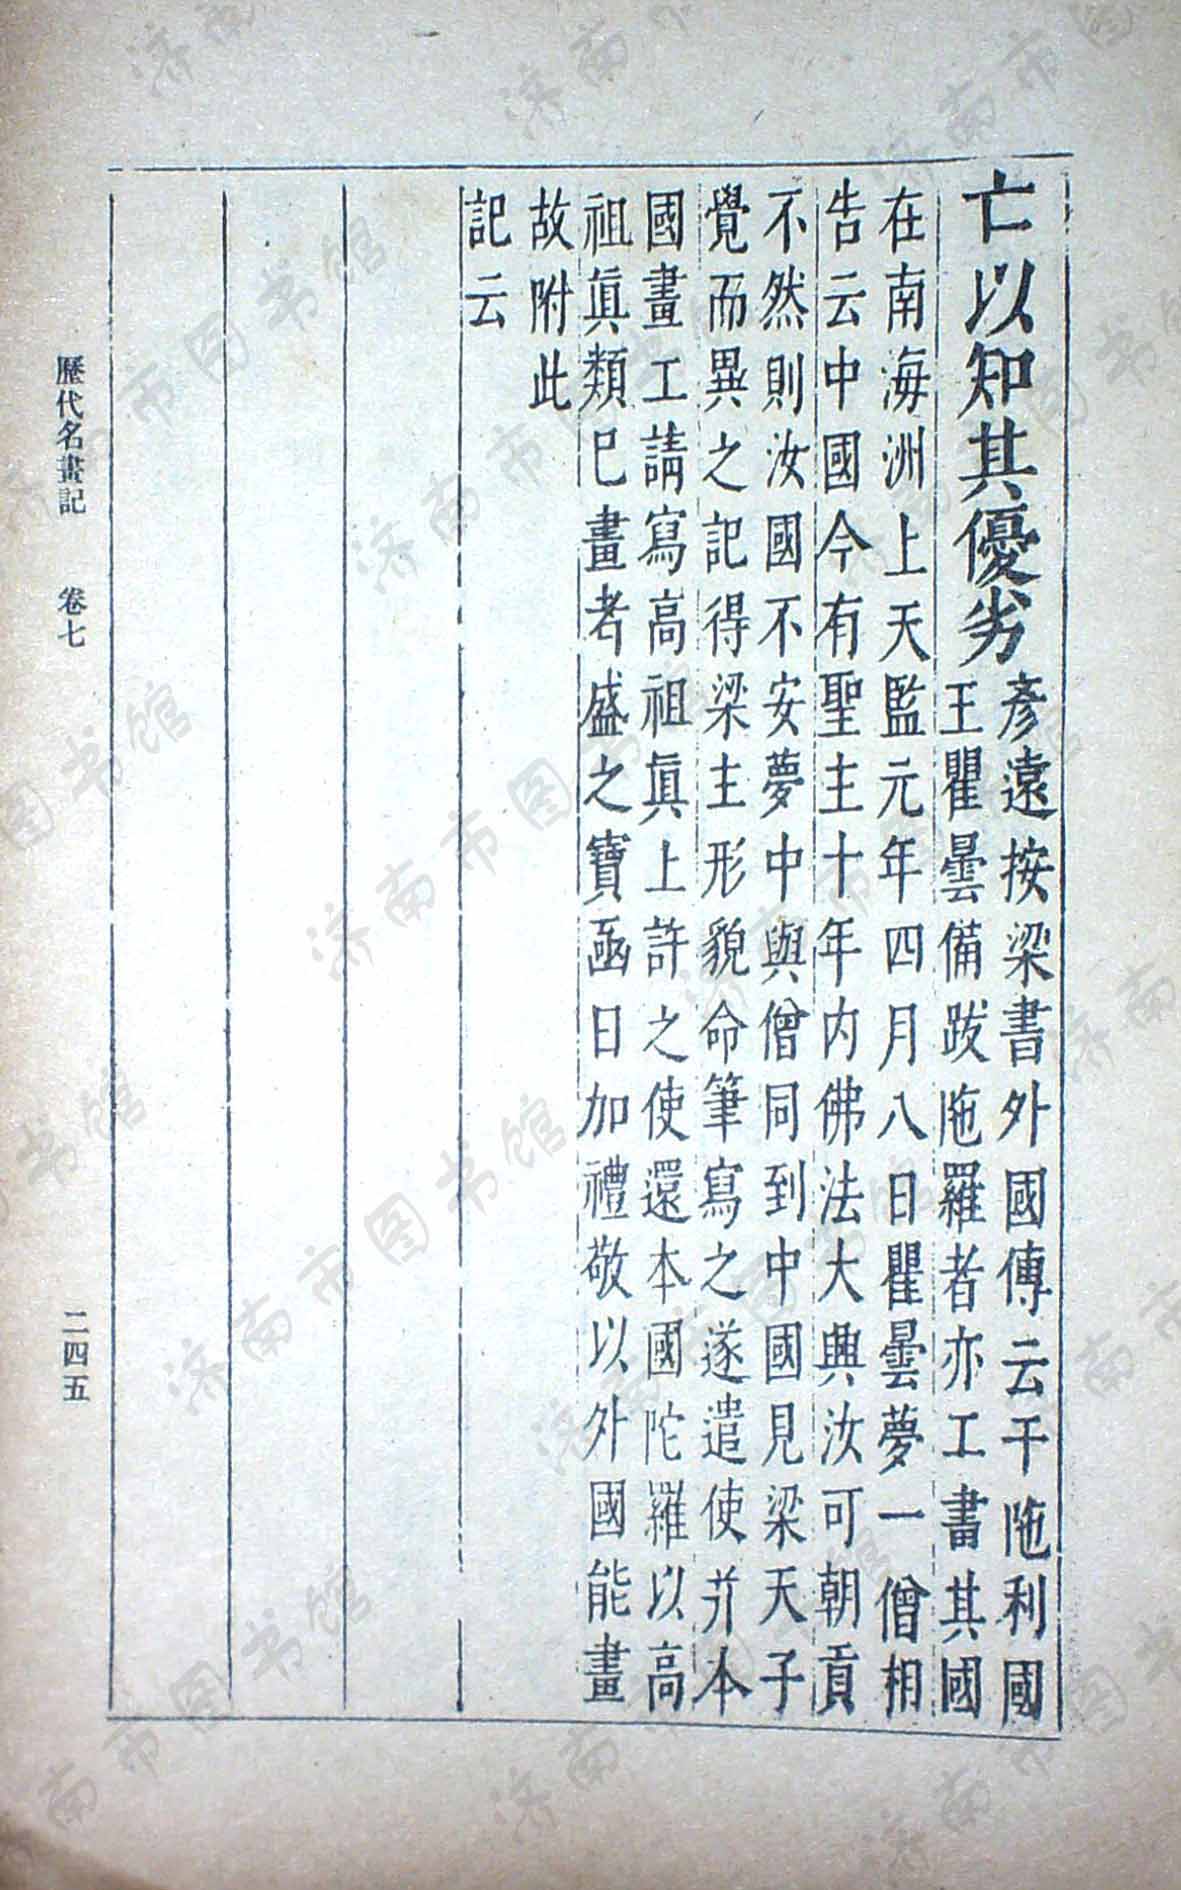 亡以知其優劣
彥遠按梁書外國傳云干陁利國
王瞿曇備跋陁羅者亦工畫其國
在南海洲上天監元年四月八日瞿曇夢一僧相
告云中國今有聖主十年内佛法大興汝可朝貢
不然則汝國不安夢中與僧同到中國見梁天子
覺而異之記得梁主形貌命筆寫之遂遣使并本
國畫工請寫高祖眞上許之使還本國陀羅以高
祖眞類巳畫者盛之寶函日加禮敬以外國能畫
故附此
記云
歷代名畫記 卷七 二四五
济南市图书馆